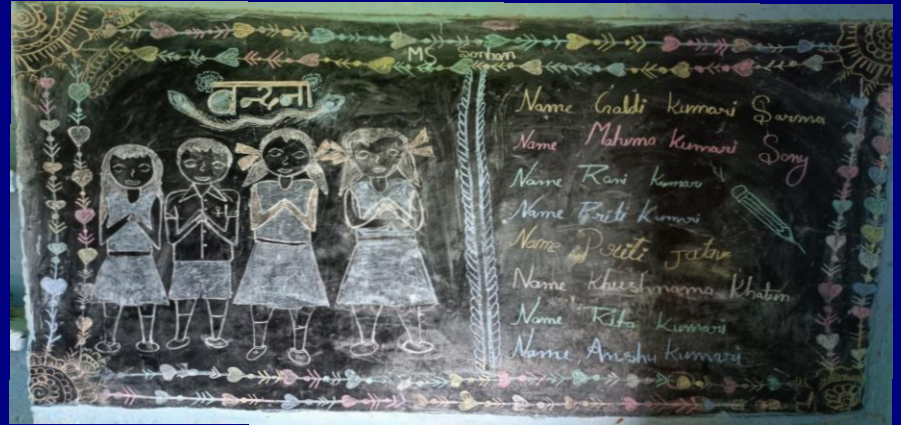 MS Sonhan
वन्दना
Name Galdi Kumari Sarma
Name Mahima Kumari Sony
Name Rani Kumari
Name Priti Kumari
Name Priti
Name Khushnama Khatun
Name Rita Kumari
Name Anshu Kumari